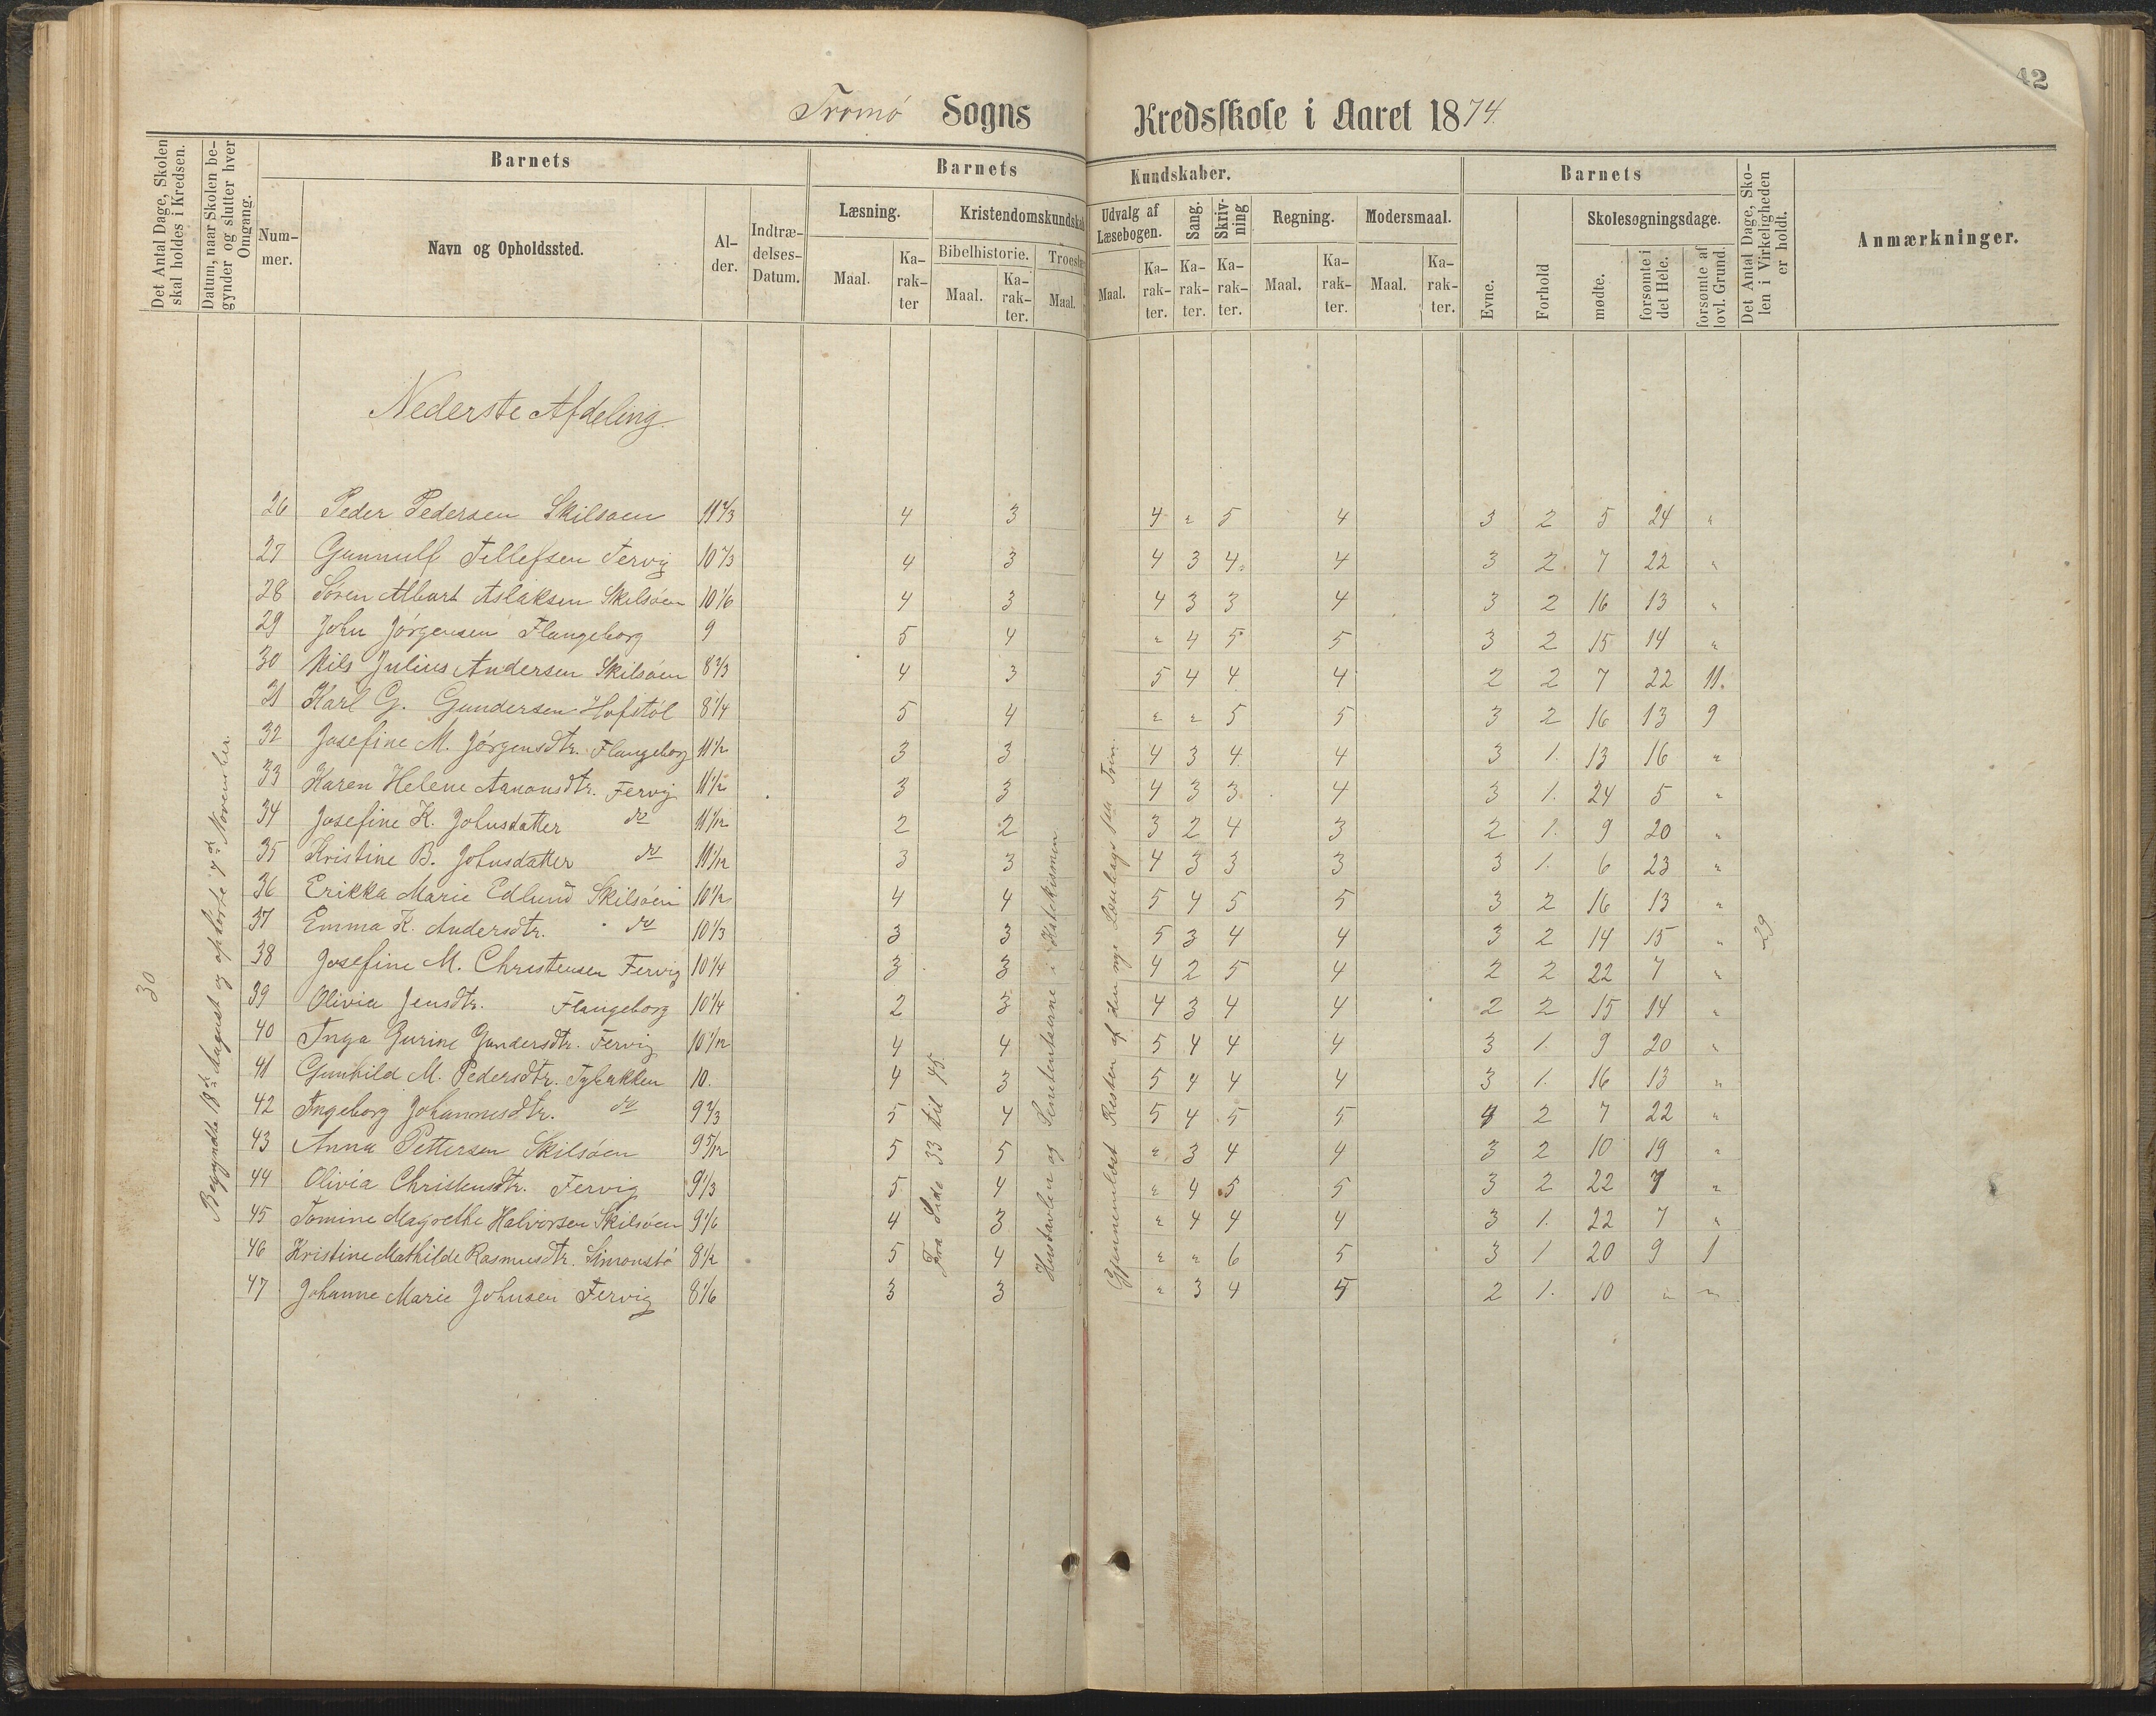 42
Tromø Sogns Kredsskole i Aaret 1874.
Det Antal Dage, Skolen skal holdes i Kredsen.
Datum, naar Skolen begynder og slutter hver Omgang.
Barnets
Nummer.
Navn og Opholdssted.
Alder.
Indtrædelses-Datum.
Barnets Kundskaber.
Læsning.
Maal.
Karakter
Kristendomskundskab
Bibelhistorie.
Maal.
Karakter.
Troeslæ
Maal.
Udvalg af Læsebogen.
Maal.
Karakter.
Sang.
Karakter.
Skrivning
Karakter.
Regning.
Maal.
Karakter.
Modersmaal.
Maal.
Karakter.
Barnets
Evne.
Forhold
Skolesøgningsdage.
mødte.
forsømte i det Hele.
forsømte af lovl. Grund.
Det Antal Dage, Skolen i Virkeligheden er holdt.
Anmærkninger.
Nederste Afdeling
26 Peder Pedersen Skilsøen 11 2/3 4 3 4 " 5 4 3 2 5 24 "
27 Gunnulf Tellefsen Fervig 10 2/3 4 3 4 3 4 4 3 2 7 22 "
28 Søren Albert Aslaksen Skilsøen 10 1/6 4 3 4 3 3 4 3 2 16 13 "
29 John Jørgensen Flangeborg 9 5 4 " 4 5 5 3 2 15 14 "
30 Nils Julius Andersen Skilsøen 8 2/3 4 3 5 4 4 4 2 2 7 22 11.
31 Karl G. Gundersen Hofstøl 8 1/4 5 4 " " 5 5 3 2 16 13 9
32 Josefine M. Jørgensdtr. Flangeborg 11 1/2 3 3 4 3 4 4 3 1. 13 16 "
33 Karen Helene Aanonsdtr. Fervig 11 1/2 3 3 4 3 3 4 3 1. 24 5 "
34 Josefine K. Johnsdatter do 11 1/12 2 2 3 2 4 3 2 1. 9 20 "
35 Kristine B. Johnsdatter do 11 1/12 3 3 4 3 3 3 3 1. 6 23 "
36 Erikka Marie Edlund Skilsøen 10 1/2 4 4 5 4 5 5 3 2 16 13 "
37 Emma K. Andersdtr. do 10 1/3 3 3 5 3 4 4 3 2 14 15 "
38 Josefine M. Christensen Fervig 10 1/4 3 3 4 2 5 4 2 2 22 7 "
39 Olivia Jensdtr. Flangeborg 10 1/4 2 3 4 3 4 4 2 2 15 14 "
40 Inga Gurine Gundersdtr. Fervig 10 1/12 4 4 5 4 4 4 3 1. 9 20 "
41 Gunhild M. Pedersdtr. Tybakken 10. 4 3 5 4 4 4 3 1. 16 13 "
42 Ingeborg Johannesdtr. do 9 2/3 5 4 5 4 5 5 4 2 7 22 "
43 Anna Pettersen Skilsøen 9 5/12 5 5 " 3 4 4 3 2 10 19 "
44 Olivia Christensdtr. Fervig 9 1/3 5 4 " 4 5 5 3 2 22 7 "
45 Tomine Magrethe Halvorsen Skilsøen 9 1/6 4 3 " 4 4 4 3 1. 22 7 "
46 Kristine Mathilde Rasmusdtr. Simonstø 8 1/2 5 4 " " 6 5 3 1 20 9 1
47 Johanne Marie Johnsen Fervig 8 1/6 3 3 " 3 4 5 2 1. 10 " "
30
Begyndte 18de August og ophørte 7de November.
Fra Side 33 til 45.
Hustavlen og Sententserne i Katekismen
Gjennemlæst Resten af den nye Læsebogs 1ste Trin.
29